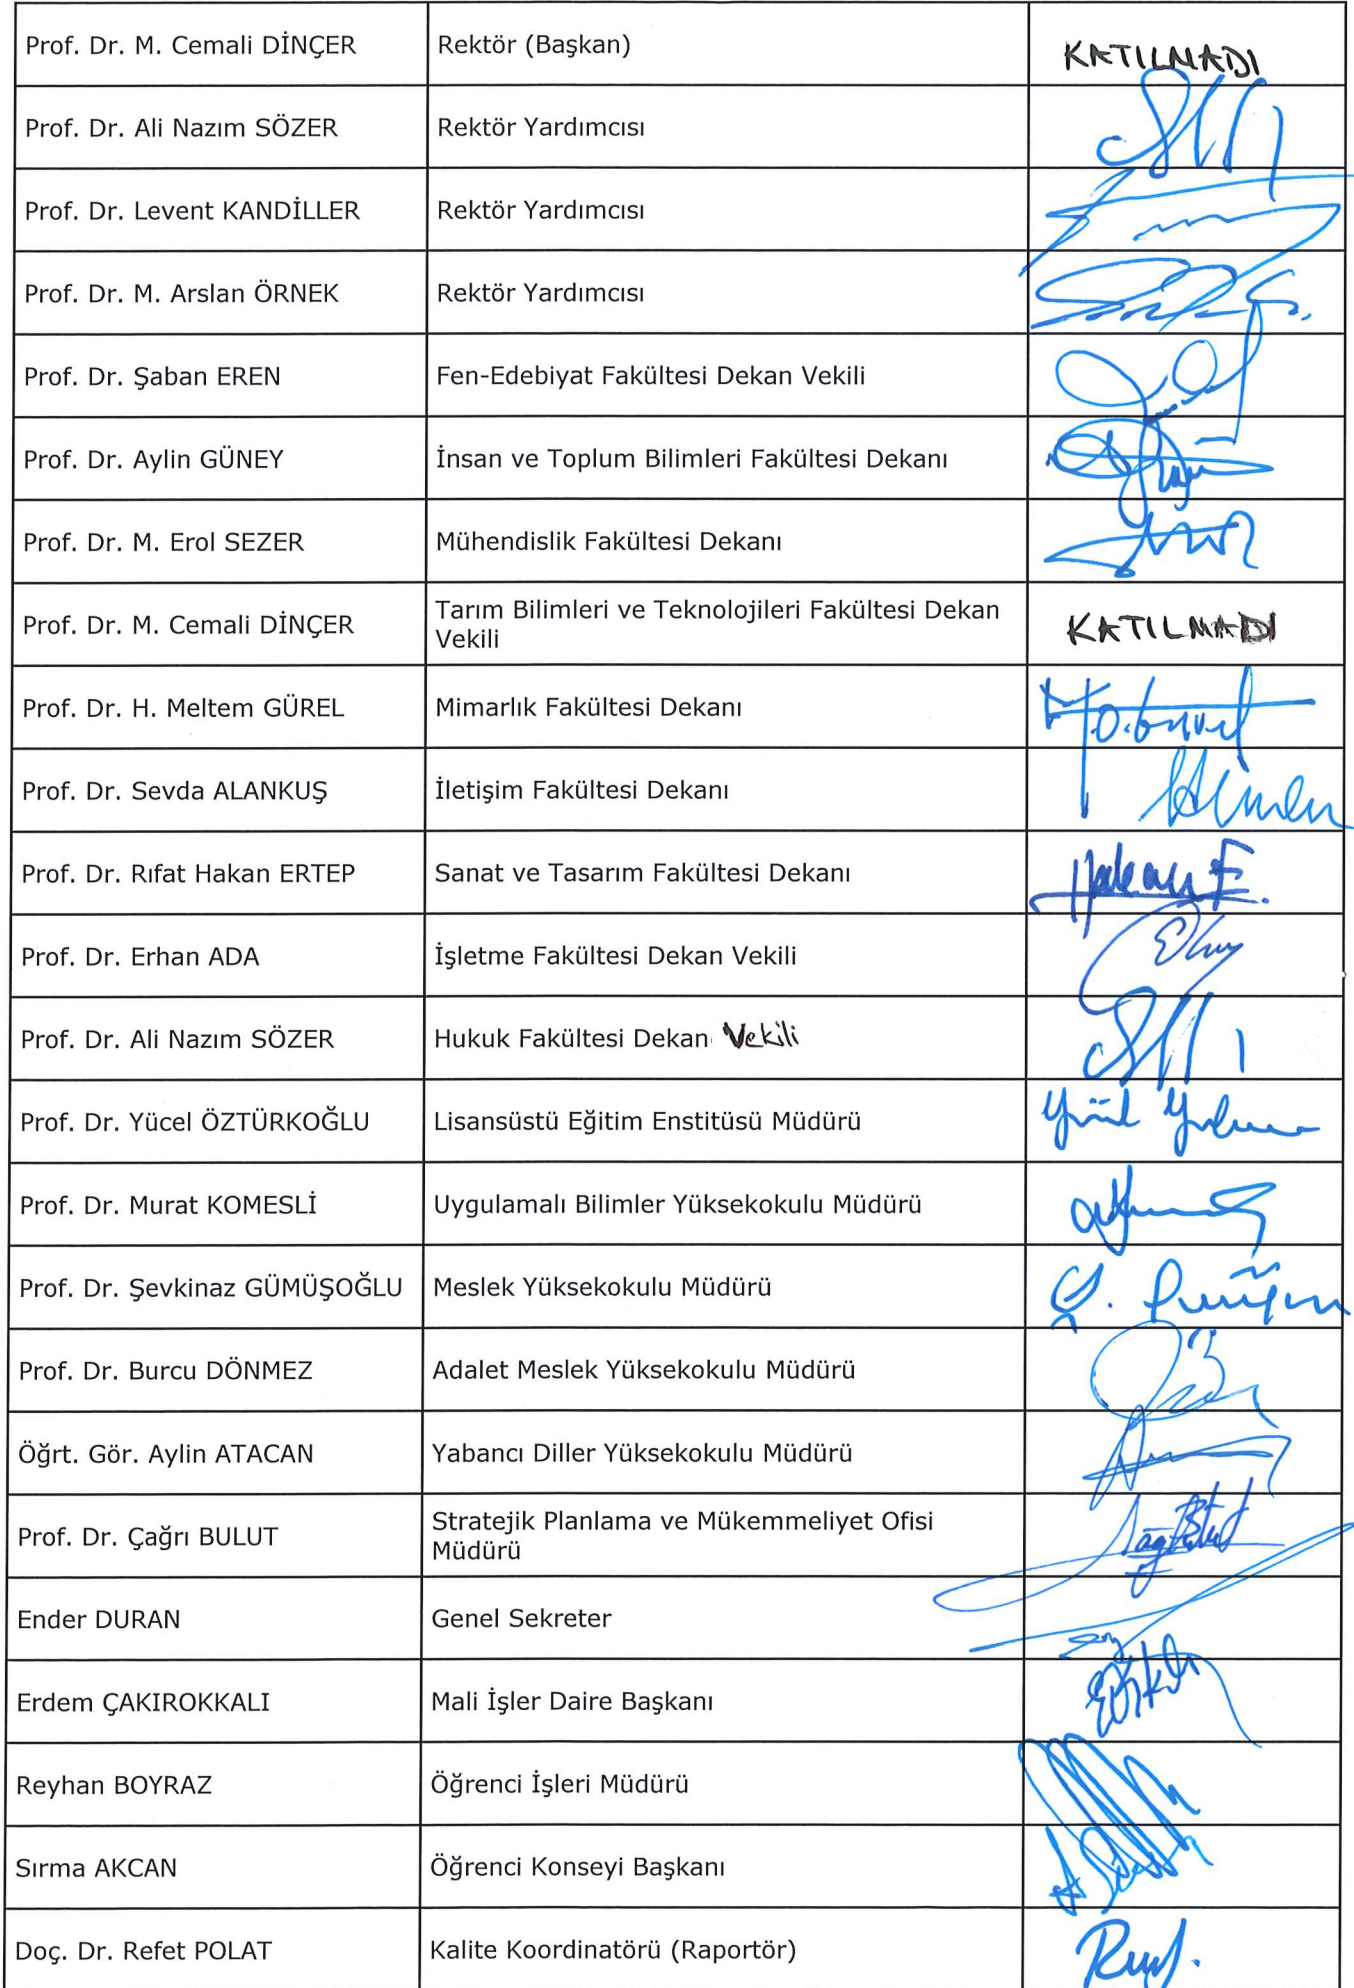 Prof. Dr. M. Cemali DİNÇER Rektör (Başkan) KATILMADI
Prof. Dr. Ali Nazım SÖZER Rektör Yardımcısı
Prof. Dr. Levent KANDİLLER Rektör Yardımcısı
Prof. Dr. M. Arslan ÖRNEK Rektör Yardımcısı
Prof. Dr. Şaban EREN Fen-Edebiyat Fakültesi Dekan Vekili
Prof. Dr. Aylin GÜNEY İnsan ve Toplum Bilimleri Fakültesi Dekanı
Prof. Dr. M. Erol SEZER Mühendislik Fakültesi Dekanı
Prof. Dr. M. Cemali DİNÇER Tarım Bilimleri ve Teknolojileri Fakültesi Dekan
Vekili KATILMADI
Prof. Dr. H. Meltem GÜREL Mimarlık Fakültesi Dekanı
Prof. Dr. Sevda ALANKUŞ İletişim Fakültesi Dekanı
Prof. Dr. Rıfat Hakan ERTEP Sanat ve Tasarım Fakültesi Dekanı Hakan E.
Prof. Dr. Erhan ADA İşletme Fakültesi Dekan Vekili
Prof. Dr. Ali Nazım SÖZER Hukuk Fakültesi Dekan Vekili
Prof. Dr. Yücel ÖZTÜRKOĞLU Lisansüstü Eğitim Enstitüsü Müdürü
Prof. Dr. Murat KOMESLİ Uygulamalı Bilimler Yüksekokulu Müdürü
Prof. Dr. Şevkinaz GÜMÜŞOĞLU Meslek Yüksekokulu Müdürü
Prof. Dr. Burcu DÖNMEZ Adalet Meslek Yüksekokulu Müdürü
Öğrt. Gör. Aylin ATACAN Yabancı Diller Yüksekokulu Müdürü
Prof. Dr. Çağrı BULUT Stratejik Planlama ve Mükemmeliyet Ofisi
Müdürü
Ender DURAN Genel Sekreter
Erdem ÇAKIROKKALI Mali İşler Daire Başkanı
Reyhan BOYRAZ Öğrenci İşleri Müdürü
Sırma AKCAN Öğrenci Konseyi Başkanı
Doç. Dr. Refet POLAT Kalite Koordinatörü (Raportör)